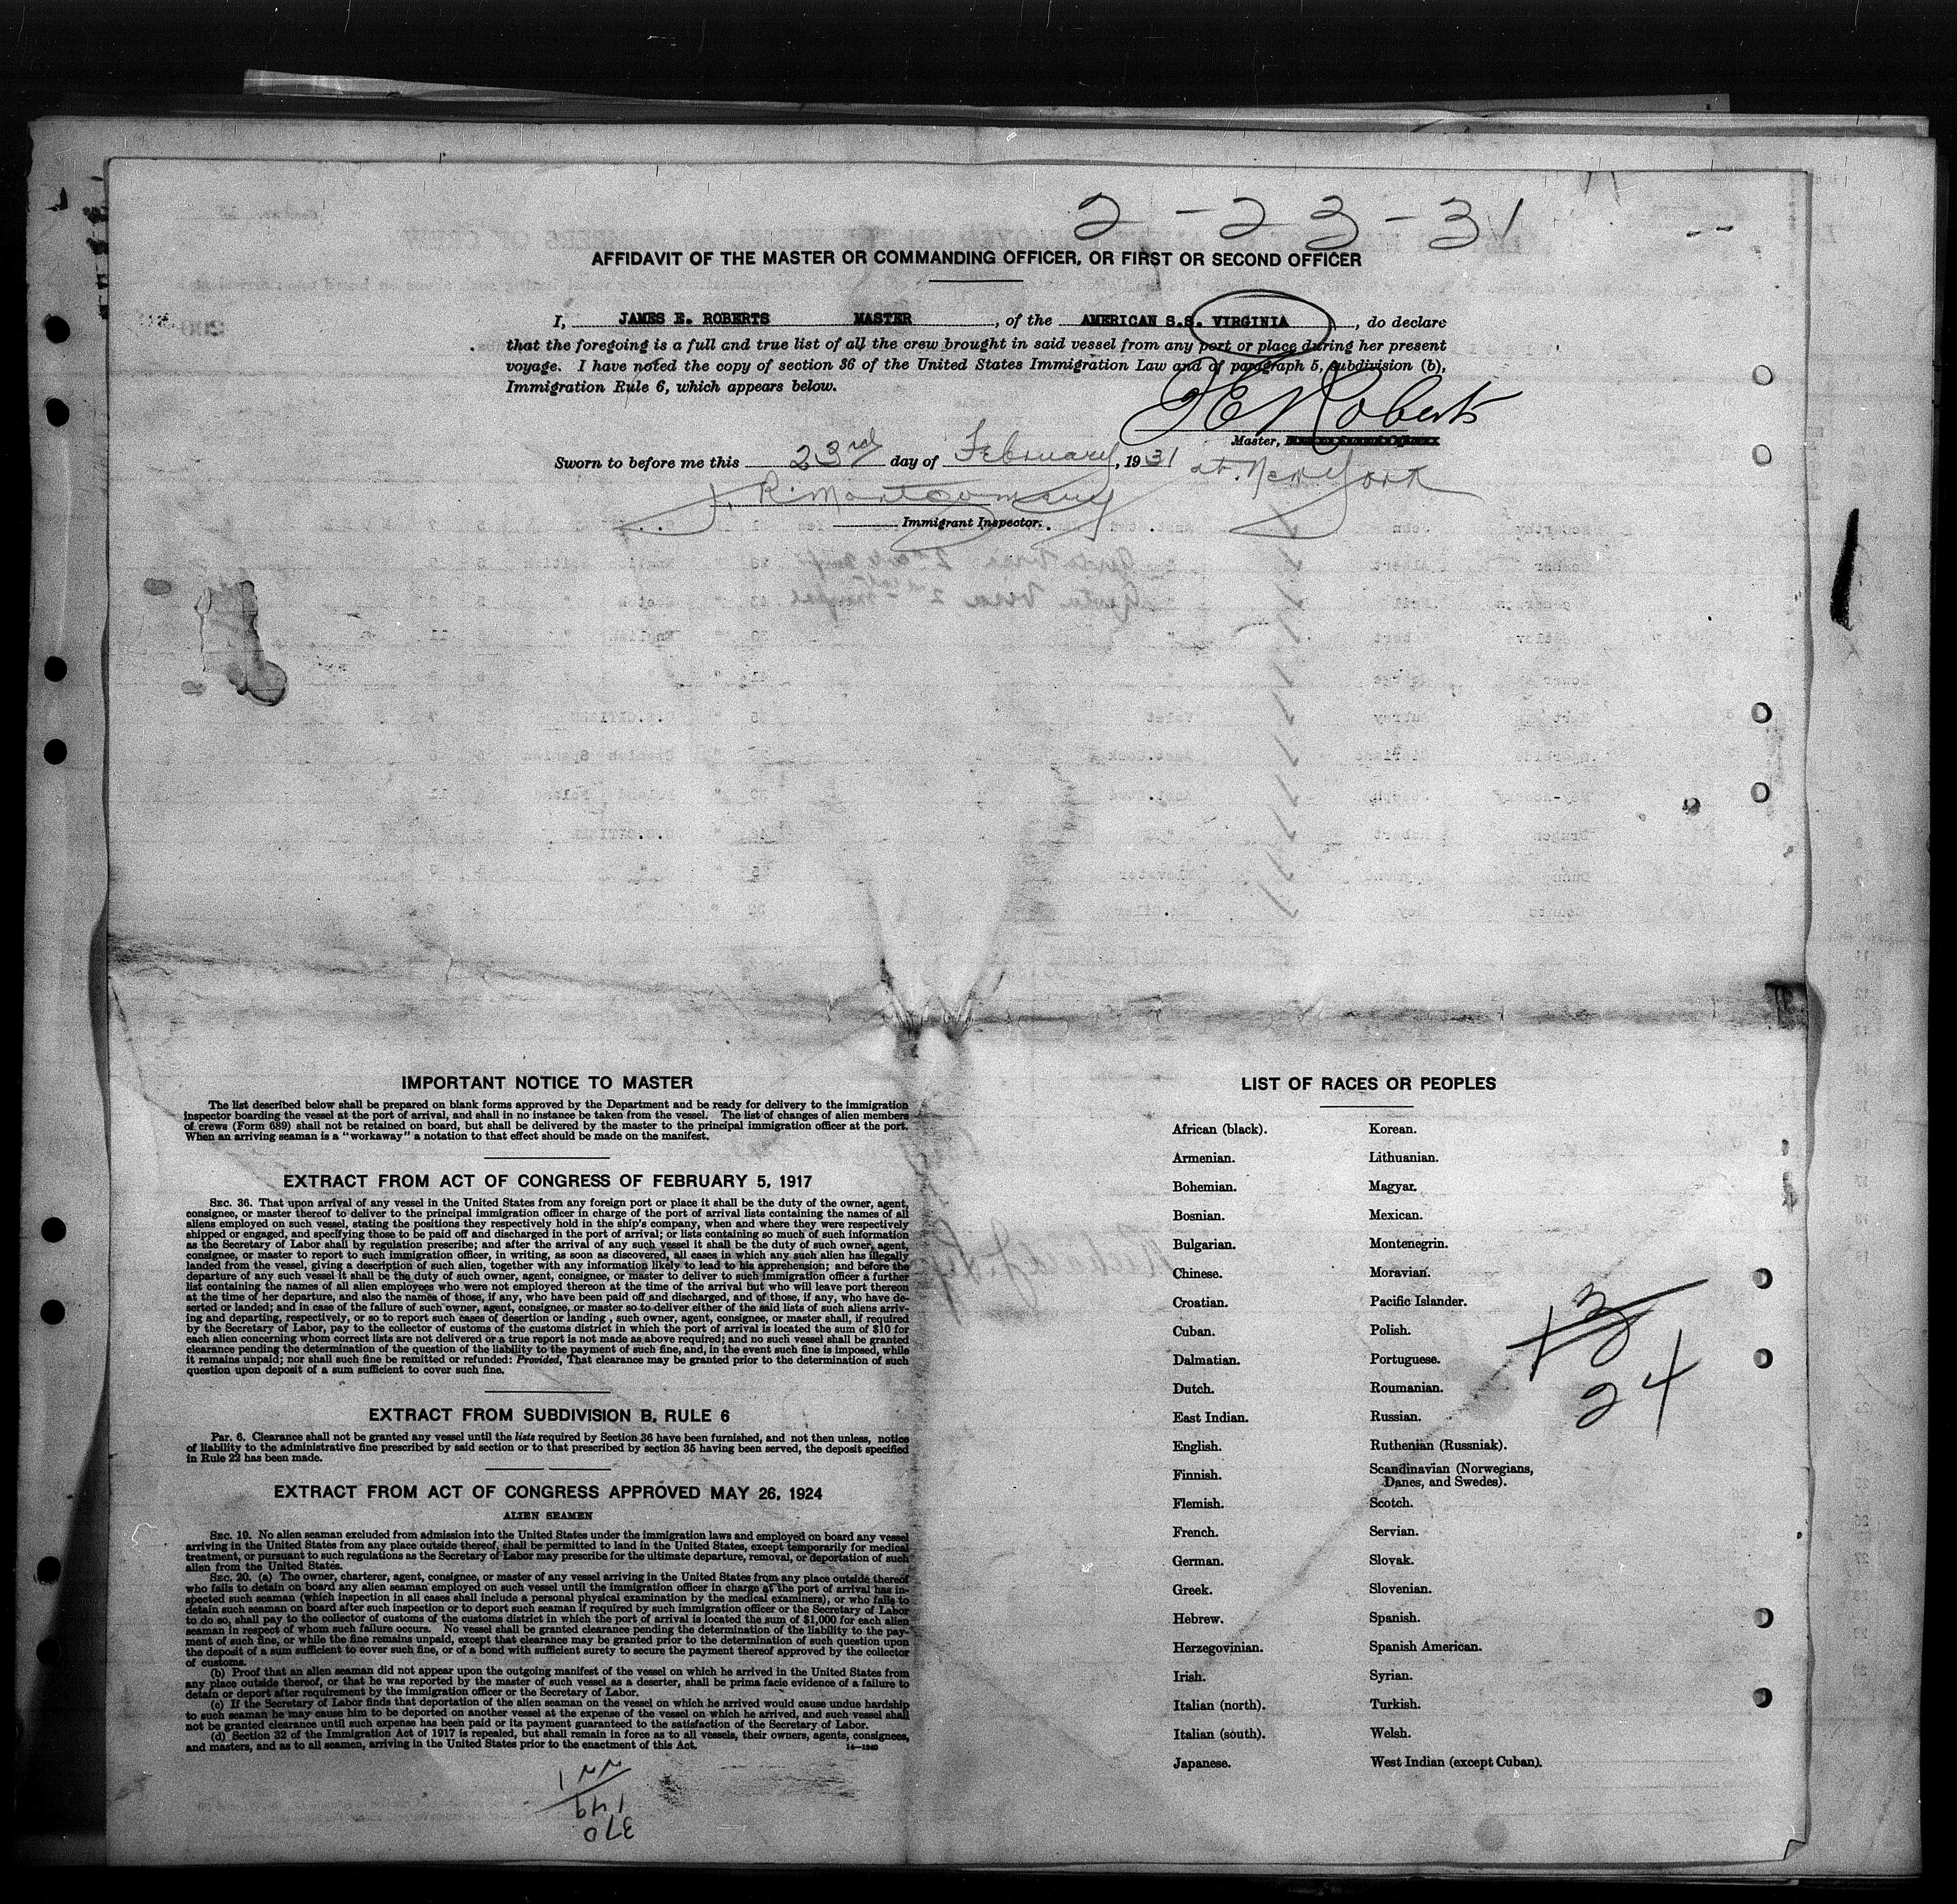 2-23-31
AFFIDAVIT OF THE MASTER OR COMMANDING OFFICER, OR FIRST OR SECOND OFFICER
I, JAMES E. ROBERTS MASTER, of the AMERICAN S.S. VIRGINIA, do declare
that the foregoing is a full and true list of all the crew brought in said vessel from any port or place during her present
voyage. I have noted the copy of section 36 of the United States Immigration Law and of paragraph 5, subdivision (b),
Immigration Rule 6, which appears below.
J E Roberts
Master,
Sworn to before me this 23rd day of February, 1931 at New York
J. R. Montgomery
Immigrant Inspector.
IMPORTANT NOTICE TO MASTER
The list described below shall be prepared on blank forms approved by the Department and be ready for delivery to the immigration
inspector boarding the vessel at the port of arrival, and shall in no instance be taken from the vessel. The list of changes of alien members
of crews (Form 689) shall not be retained on board, but shall be delivered by the master to the principal immigration officer at the port.
When an arriving seaman is a "workaway" a notation to that effect should be made on the manifest.
EXTRACT FROM ACT OF CONGRESS OF FEBRUARY 5, 1917
SEC. 36. That upon arrival of any vessel in the United States from any foreign port or place it shall be the duty of the owner, agent,
consignee, or master thereof to deliver to the principal immigration officer in charge of the port of arrival lists containing the names of all
aliens employed on such vessel, stating the positions they respectively hold in the ship's company, when and where they were respectively
shipped or engaged, and specifying those to be paid off and discharged in the port of arrival; or lists containing so much of such information
as the Secretary of Labor shall by regulation prescribe; and after the arrival of any such vessel it shall be the duty of such owner, agent,
consignee, or master to report to such immigration officer, in writing, as soon as discovered, all cases in which any such alien has illegally
landed from the vessel, giving a description of such alien, together with any information likely to lead to his apprehension; and before the
departure of any such vessel it shall be the duty of such owner, agent, consignee, or master to deliver to such immigration officer a further
list containing the names of all alien employees who were not employed thereon at the time of the arrival but who will leave port thereon
at the time of her departure, and also the names of those, if any, who have been paid off and discharged, and of those, if any, who have de-
serted or landed; and in case of the failure of such owner, agent, consignee, or master so to deliver either of the said lists of such aliens arriv-
ing and departing, respectively, or so to report such cases of desertion or landing, such owner, agent, consignee, or master shall, if required
by the Secretary of Labor, pay to the collector of customs of the customs district in which the port of arrival is located the sum of $10 for
each alien concerning whom correct lists are not delivered or a true report is not made as above required; and no such vessel shall be granted
clearance pending the determination of the question of the liability to the payment of such fine, and, in the event such fine is imposed, while
it remains unpaid; nor shall such fine be remitted or refunded: Provided, That clearance may be granted prior to the determination of such
question upon deposit of a sum sufficient to cover such fine.
EXTRACT FROM SUBDIVISION B, RULE 6
Par. 6. Clearance shall not be granted any vessel until the lists required by Section 36 have been furnished, and not then unless, notice
of liability to the administrative fine prescribed by said section or to that prescribed by section 35 having been served, the deposit specified
in Rule 22 has been made.
EXTRACT FROM ACT OF CONGRESS APPROVED MAY 26, 1924
ALIEN SEAMEN
SEC. 19. No alien seaman excluded from admission into the United States under the immigration laws and employed on board any vessel
arriving in the United States from any place outside thereof, shall be permitted to land in the United States, except temporarily for medical
treatment, or pursuant to such regulations as the Secretary of Labor may prescribe for the ultimate departure, removal, or deportation of such
alien from the United States.
SEC. 20. (a) The owner, charterer, agent, consignee, or master of any vessel arriving in the United States from any place outside thereof
who fails to detain on board any alien seaman employed on such vessel until the immigration officer in charge at the port of arrival has in-
spected such seaman (which inspection in all cases shall include a personal physical examination by the medical examiners), or who fails to
detain such seaman on board after such inspection or to deport such seaman if required by such immigration officer or the Secretary of Labor
to do so, shall pay to the collector of customs of the customs district in which the port of arrival is located the sum of $1,000 for each alien
seaman in respect of whom such failure occurs. No vessel shall be granted clearance pending the determination of the liability to the pay-
ment of such fine, or while the fine remains unpaid, except that clearance may be granted prior to the determination of such question upon
the deposit of a sum sufficient to cover such fine, or of a bond with sufficient surety to secure the payment thereof approved by the collector
of customs.
(b) Proof that an alien seaman did not appear upon the outgoing manifest of the vessel on which he arrived in the United States from
any place outside thereof, or that he was reported by the master of such vessel as a deserter, shall be prima facie evidence of a failure to
detain or deport after requirement by the immigration officer or the Secretary of Labor.
(c) If the Secretary of Labor finds that deportation of the alien seaman on the vessel on which he arrived would cause undue hardship
to such seaman he may cause him to be deported on another vessel at the expense of the vessel on which he arrived, and such vessel shall
not be granted clearance until such expense has been paid or its payment guaranteed to the satisfaction of the Secretary of Labor.
(d) Section 32 of the Immigration Act of 1917 is repealed, but shall remain in force as to all vessels, their owners, agents, consignees,
and masters, and as to all seamen, arriving in the United States prior to the enactment of this Act.
14—1240
370
149
LIST OF RACES OR PEOPLES
African (black). Korean.
Armenian. Lithuanian.
Bohemian. Magyar.
Bosnian. Mexican.
Bulgarian. Montenegrin.
Chinese. Moravian.
Croatian. Pacific Islander.
Cuban. Polish.
Dalmatian. Portuguese.
Dutch. Roumanian.
East Indian. Russian.
English. Ruthenian (Russniak).
Finnish. Scandinavian (Norwegians,
Danes, and Swedes).
Flemish. Scotch.
French. Servian.
German. Slovak.
Greek. Slovenian.
Hebrew. Spanish.
Herzegovinian. Spanish American.
Irish. Syrian.
Italian (north). Turkish.
Italian (south). Welsh.
Japanese. West Indian (except Cuban).
24